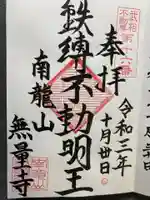 奉拝
武相
不動尊
第十六番
令和三年
十月廿日
鉄縛不動明王
南龍山
無量寺